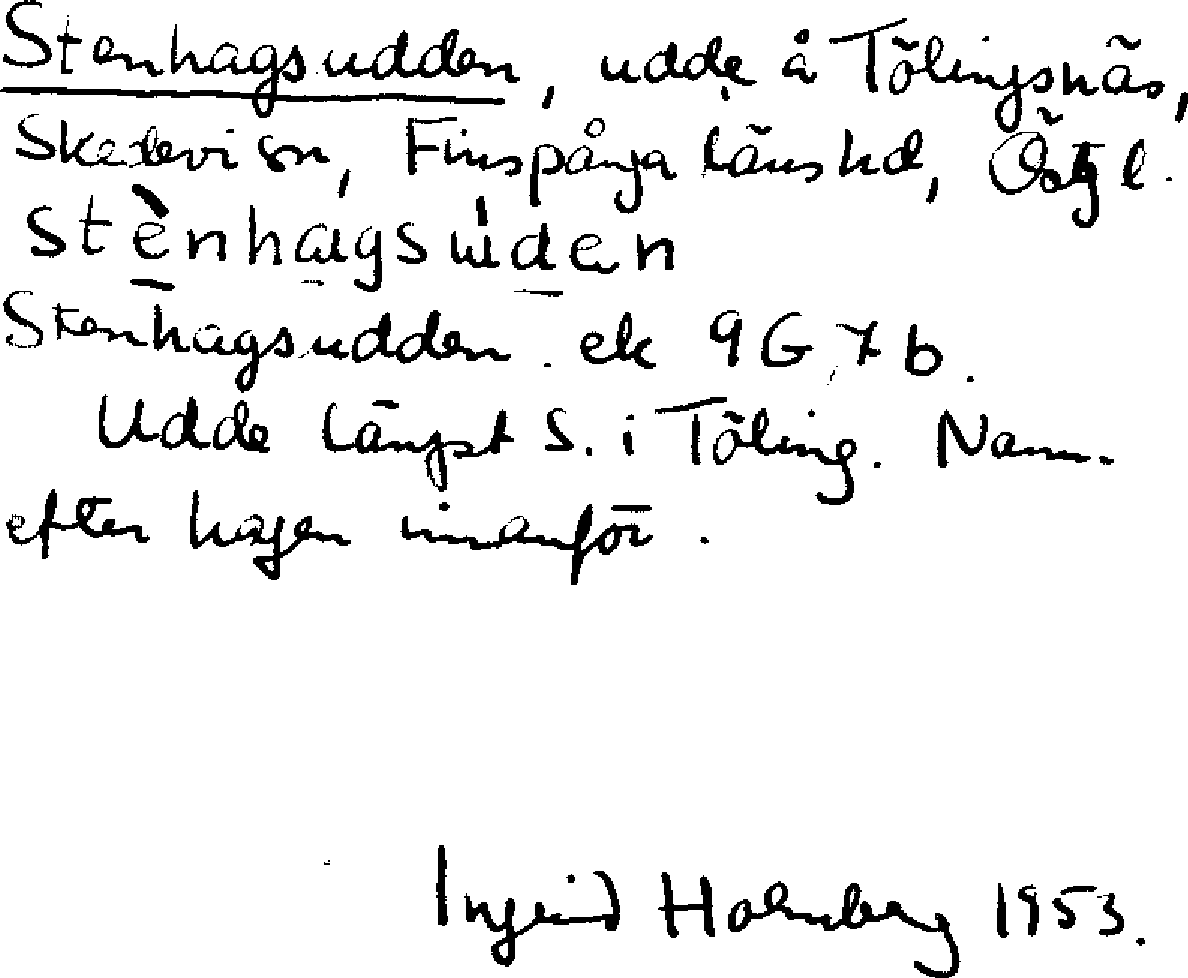 Stenhagsudden, udde å Tölingsnäs,
Skedevi sn, Finspånga läns hd, Östg l.
stènhagsuden
Stenhagsudden. ek 9G 7b.
Udde längst S. i Töling. Namn
efter hagen innanför.
Ingrid Holmberg 1953.